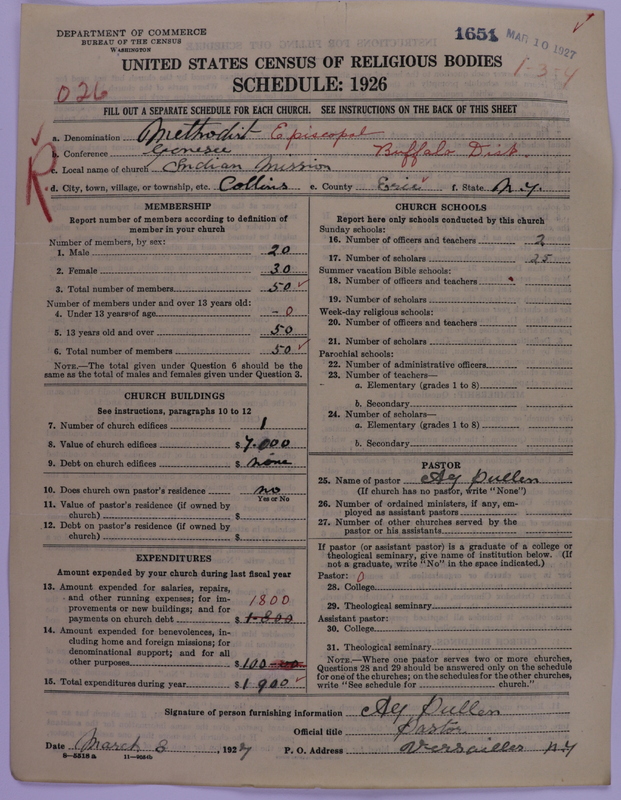 DEPARTMENT OF COMMERCE
BUREAU OF THE CENSUS
WASHINGTON
1651 MAR 10 1927
UNITED STATES CENSUS OF RELIGIOUS BODIES
1-3-4
SCHEDULE: 1926
026
FILL OUT A SEPARATE SCHEDULE FOR EACH CHURCH. SEE INSTRUCTIONS ON THE BACK OF THIS SHEET
R
a. Denomination Methodist Episcopal
b. Conference Genesee Buffalo Dist.
c. Local name of church Indian Mission
d. City, town, village, or township, etc. Collins e. County Erie f. State N.Y.
MEMBERSHIP
Report number of members according to definition of member in your church
Number of members, by sex:
1. Male 20
2. Female 30
3. Total number of members 50
Number of members under and over 13 years old:
4. Under 13 years of age - 0
5. 13 years old and over 50
6. Total number of members 50
NOTE.—The total given under Question 6 should be the same as the total of males and females given under Question 3.
CHURCH BUILDINGS
See instructions, paragraphs 10 to 12
7. Number of church edifices 1
8. Value of church edifices $ 7.000
9. Debt on church edifices $ none
10. Does church own pastor's residence no
Yes or No
11. Value of pastor's residence (if owned by church) $
12. Debt on pastor's residence (if owned by church) $
EXPENDITURES
Amount expended by your church during last fiscal year
13. Amount expended for salaries, repairs, and other running expenses; for improvements or new buildings; and for payments on church debt 1800 $ 1800
14. Amount expended for benevolences, including home and foreign missions; for denominational support; and for all other purposes $ 100
15. Total expenditures during year $ 1900
CHURCH SCHOOLS
Report here only schools conducted by this church
Sunday schools:
16. Number of officers and teachers 2
17. Number of scholars 25
Summer vacation Bible schools:
18. Number of officers and teachers
19. Number of scholars
Week-day religious schools:
20. Number of officers and teachers
21. Number of scholars
Parochial schools:
22. Number of administrative officers
23. Number of teachers—
a. Elementary (grades 1 to 8)
b. Secondary
24. Number of scholars—
a. Elementary (grades 1 to 8)
b. Secondary
PASTOR
25. Name of pastor Pullen
(If church has no pastor, write "None")
26. Number of ordained ministers, if any, employed as assistant pastors
27. Number of other churches served by the pastor or his assistants
If pastor (or assistant pastor) is a graduate of a college or theological seminary, give name of institution below. (If not a graduate, write "No" in the space indicated.)
Pastor: 0
28. College
29. Theological seminary
Assistant pastor:
30. College
31. Theological seminary
NOTE.—Where one pastor serves two or more churches, Questions 28 and 29 should be answered only on the schedule for one of the churches; on the schedules for the other churches, write "See schedule for church."
Signature of person furnishing information Pullen
Official title Pastor
Date March 3, 1927 P. O. Address Versailles NY
8—5518a 11—9084b